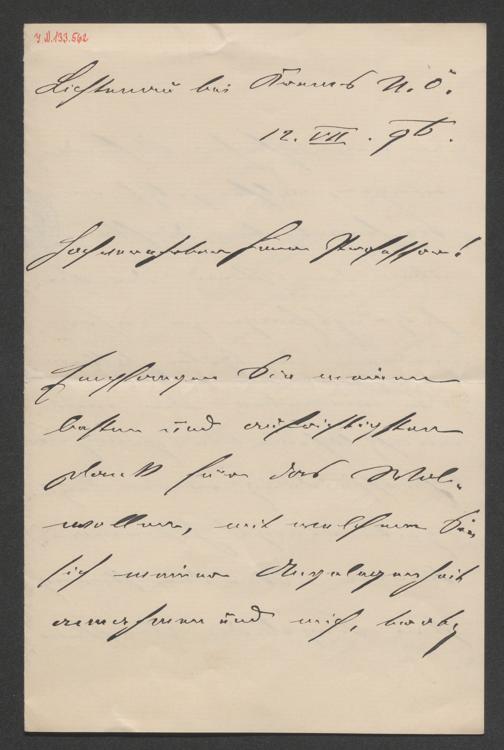 I.N.133.562
Lichtenau bei Krems N.Ö.
12. VII. 96.
Hochverehrter Herr Professor!
Empfangen Sie meinen
besten und aufrichtigsten
Dank für das Wol-
wollen, mit welchem Sie
sich meiner Angelegenheit
annehmen und mich, trotz